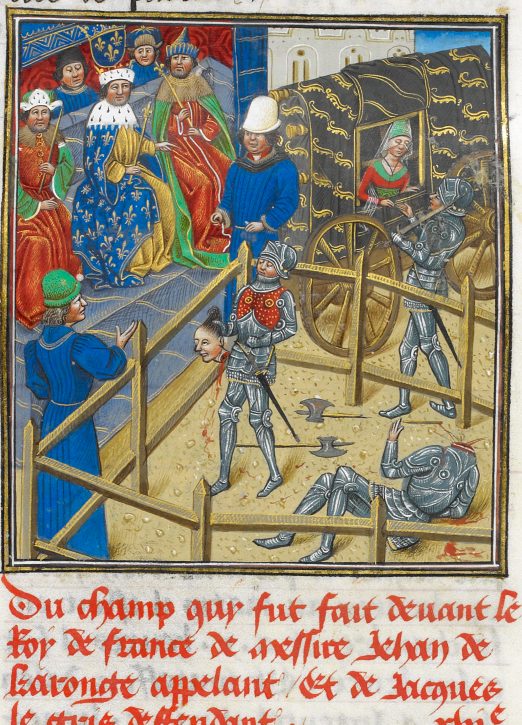 Du champ quy fut fait deuant le
Roy de france de messire Jehan de
karonge appelant / Et de Jacques
le gris deffendant